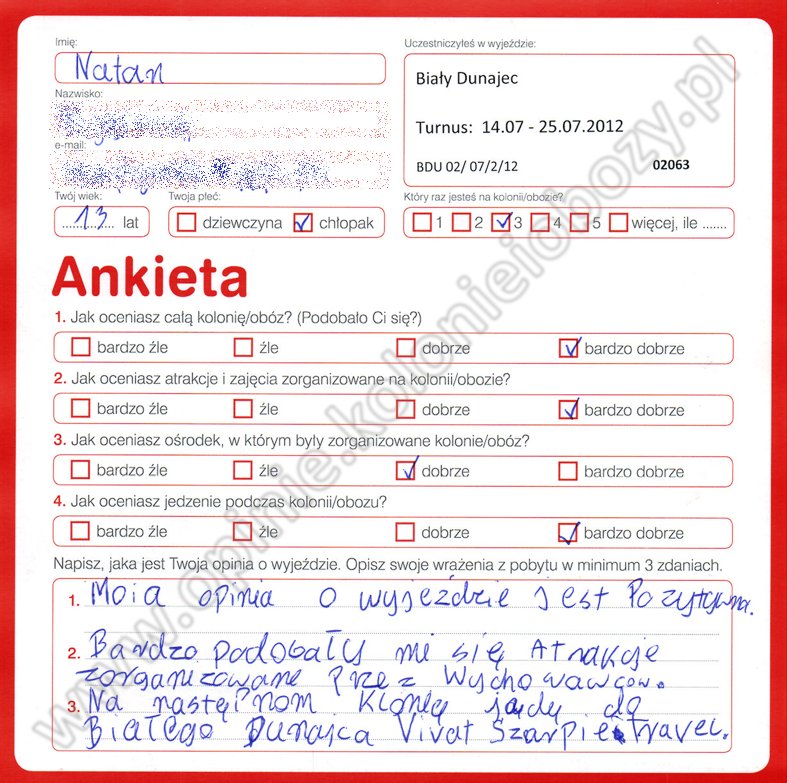 Imię:
Natan
Nazwisko:
e-mail:
Twój wiek:
13 lat
Twoja płeć:
dziewczyna chłopak
Uczestniczyłeś w wyjeździe:
Biały Dunajec
Turnus: 14.07 - 25.07.2012
BDU 02/ 07/2/12 02063
Który raz jesteś na kolonii/obozie?
1 2 3 4 5 więcej, ile .......
Ankieta
1. Jak oceniasz całą kolonię/obóz? (Podobało Ci się?)
bardzo źle źle dobrze bardzo dobrze
2. Jak oceniasz atrakcje i zajęcia zorganizowane na kolonii/obozie?
bardzo źle źle dobrze bardzo dobrze
3. Jak oceniasz ośrodek, w którym były zorganizowane kolonie/obóz?
bardzo źle źle dobrze bardzo dobrze
4. Jak oceniasz jedzenie podczas kolonii/obozu?
bardzo źle źle dobrze bardzo dobrze
Napisz, jaka jest Twoja opinia o wyjeździe. Opisz swoje wrażenia z pobytu w minimum 3 zdaniach.
1. Moia opinia o wyjeździe jest Pozytywna.
2. Bardzo podobały mi się Atrakcje
zorganizowane przez Wychowawców.
3. Na następnom klonię jadę do
Białego Dunajca Vivat Szarpie Travel.
www.opinie.kolonieiobozy.pl